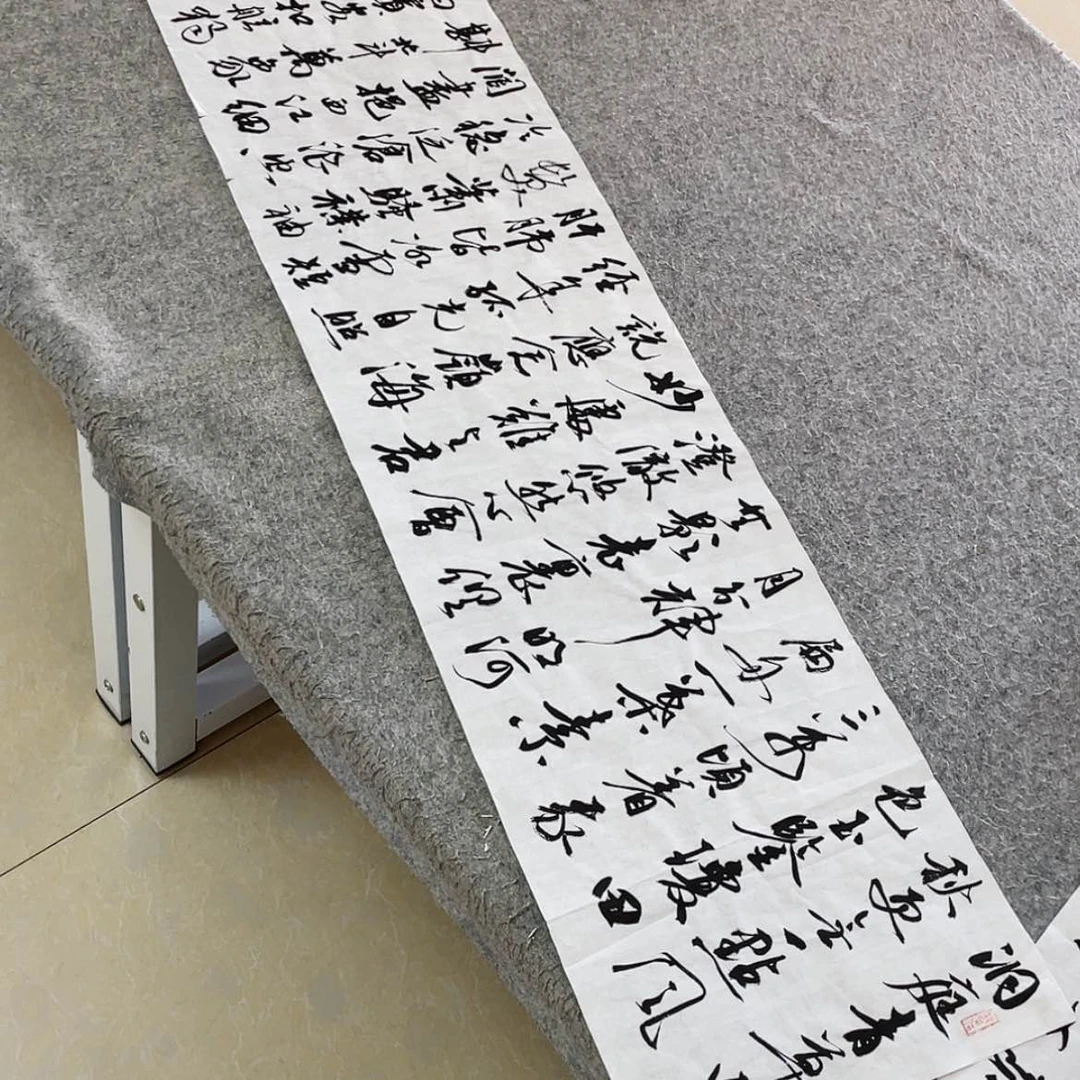 洞庭青草
秋更無一點風
色玉鑒瓊田
三万頃着我
扁舟一葉素
月分輝明河
共影表裏俱
澄澈悠然心會
妙處難與君
說應念嶺海
經年孤光自照
肝肺皆冰雪短
髮蕭騷襟袖
冷穩泛滄浪空
闊盡挹西江細
斟北斗萬象
賓客扣舷獨